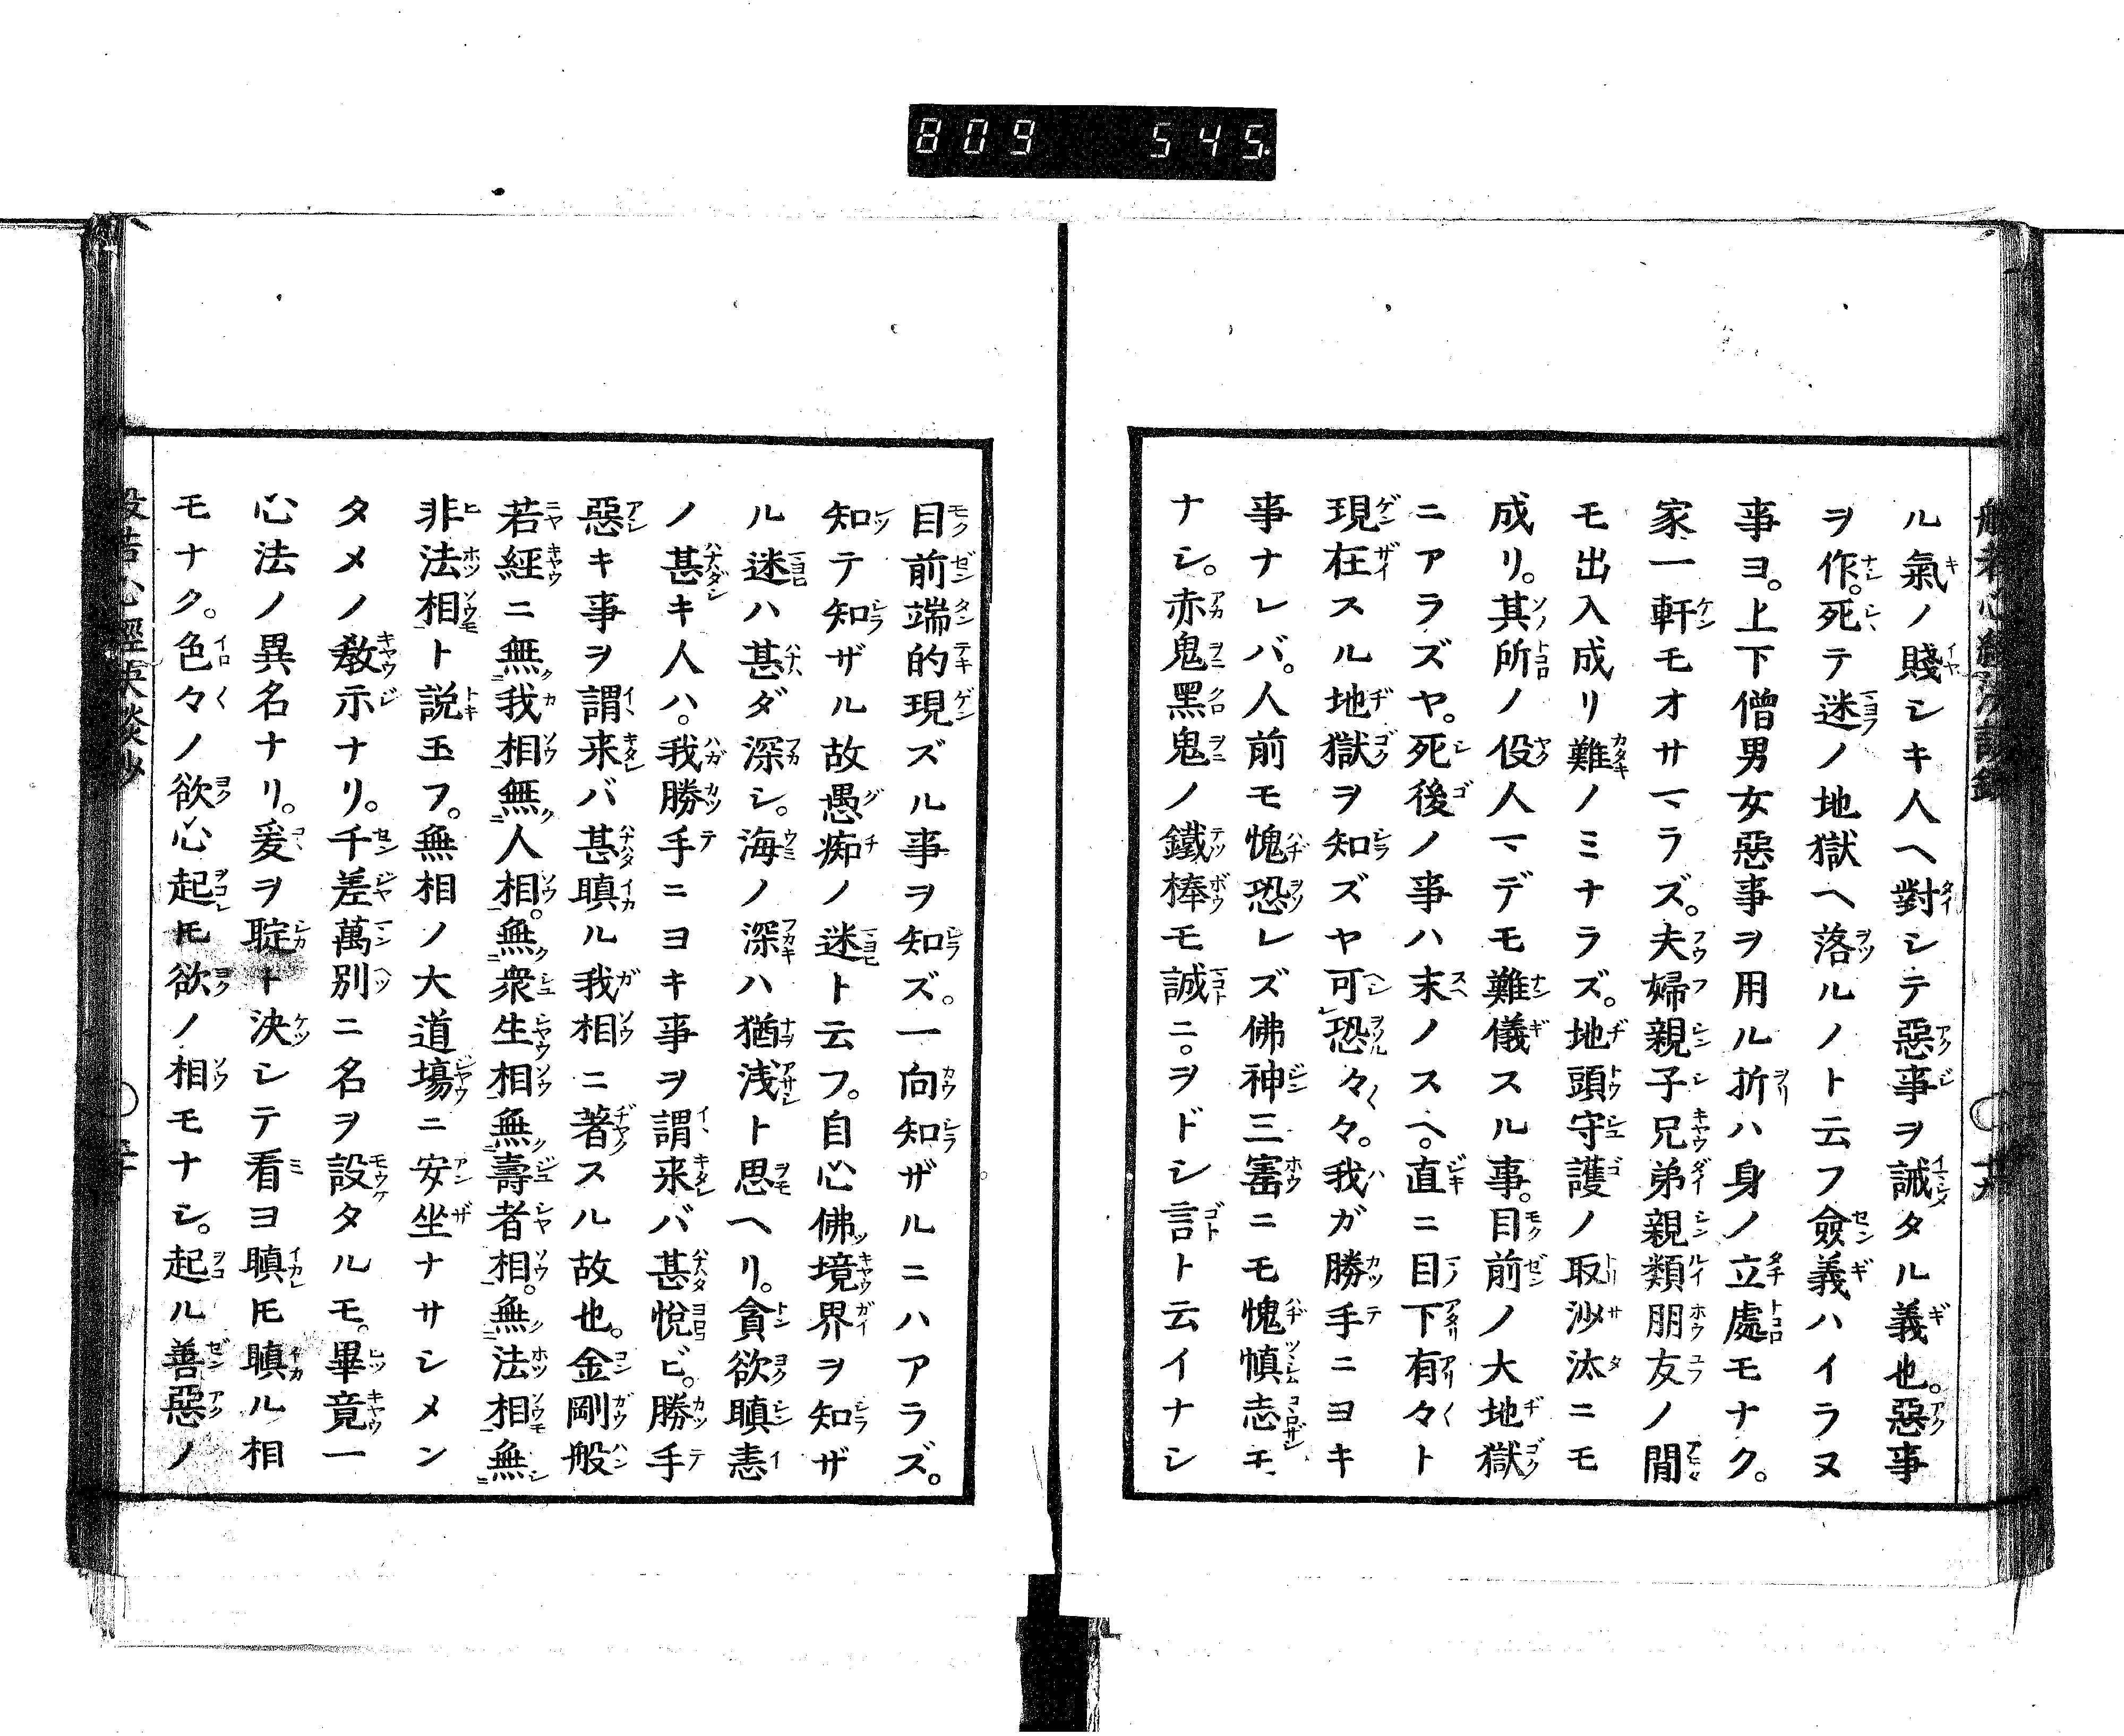 809 545.
ル氣ノ賤シキ人ヘ對シテ惡事ヲ誡タル義也。惡事
ヲ作。死テ迷ノ地獄ヘ落ルノト云フ僉義ハイラヌ
事ヨ。上下僧男女惡事ヲ用ル折ハ身ノ立處モナク。
家一軒モオサマラズ。夫婦親子兄弟親類朋友ノ間
モ出入成リ難ノミナラズ。地頭守護ノ取沙汰ニモ
成リ。其所ノ役人マデモ難儀スル事。目前ノ大地獄
ニアラズヤ。死後ノ事ハ末ノスヘ。直ニ目下有々ト
現在スル地獄ヲ知ズヤ可恐々々。我ガ勝手ニヨキ
事ナレバ。人前モ愧恐レズ佛神三寚ニモ愧愼志モ
ナシ。赤鬼黑鬼ノ鐵棒モ誠ニ。ヲドシ言ト云イナシ
目前端的現ズル事ヲ知ズ。一向知ザルニハアラズ。
知テ知ザル故愚痴ノ迷ト云フ。自心佛境界ヲ知ザ
ル迷ハ甚ダ深シ。海ノ深ハ猶浅ト思ヘリ。貪欲瞋恚
ノ甚キ人ハ。我勝手ニヨキ事ヲ謂来バ甚悅ビ。勝手
惡キ事ヲ謂来バ甚瞋ル我相ニ著スル故也。金剛般
若經ニ無我相無人相。無衆生相無壽者相。無法相無
非法相ト説玉フ。無相ノ大道場ニ安坐ナサシメン
タメノ敎示ナリ。千差萬別ニ名ヲ設タルモ。畢竟一
心法ノ異名ナリ。爰ヲ聢ト決シテ看ヨ瞋トモ瞋ル相
モナク。色々ノ欲心起トモ欲ノ相モナシ。起ル善惡ノ